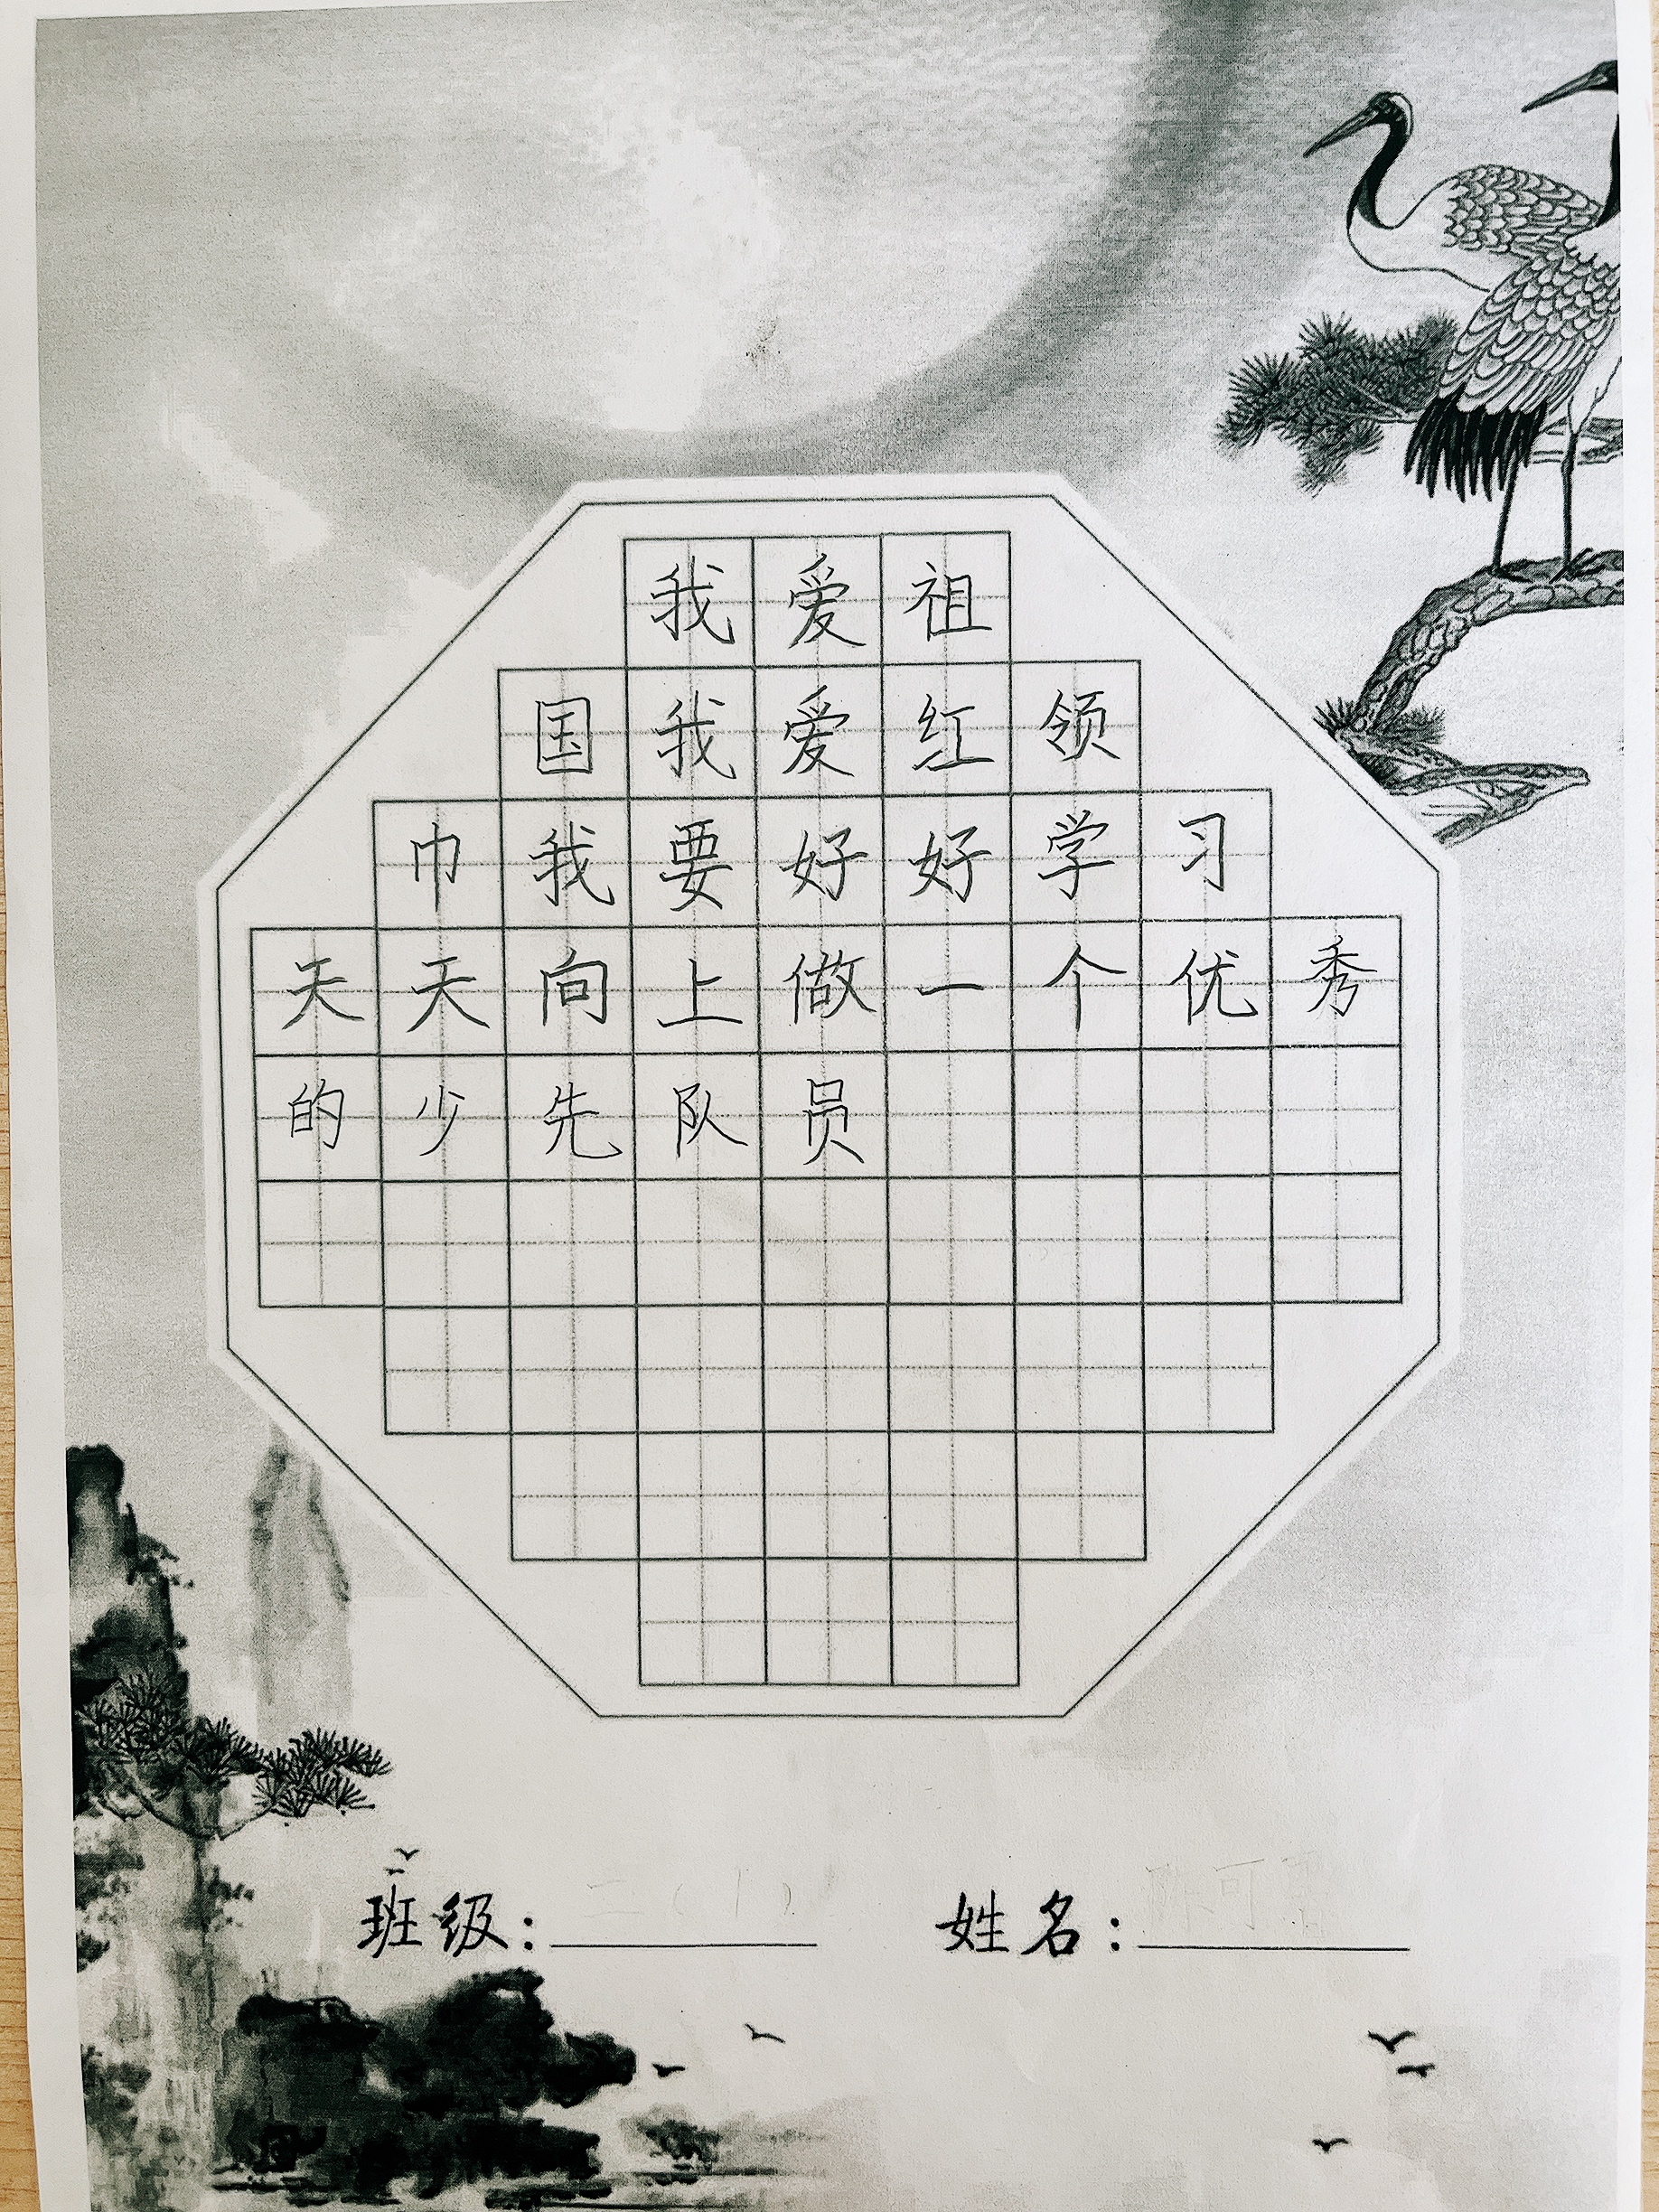 我爱祖
国我爱红领
巾我要好好学习
天天向上做一个优秀
的少先队员
班级：二（1） 姓名：